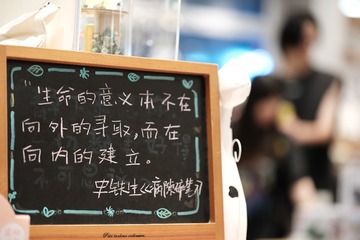 “生命的意义本不在
向外的寻取,而在
向内的建立。
史铁生《病隙碎笔》